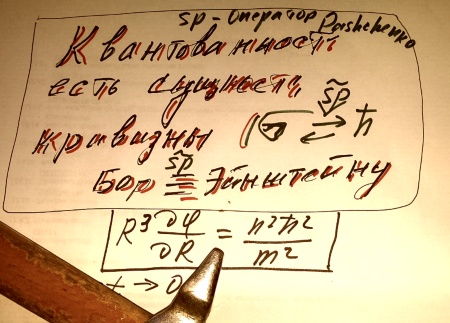 sp - оператор Pashchenko
Квантованность
есть сущность
кривизны s͂p ⇄ ħ
Бор s͂p ≡ Эйнштейну
R³ ∂φ/∂R = n²ħ²/m²
t → 0